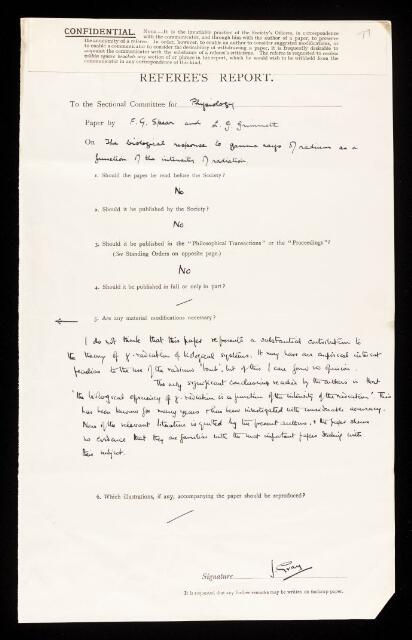 CONFIDENTIAL.
NOTE.—It is the invariable practice of the Society's Officers, in correspondence
with the communicator, and through him with the author of a paper, to preserve
the anonymity of a referee. In order, however, to enable an author to consider suggested modifications, or
to enable a communicator to consider the desirability of withdrawing a paper, it is frequently desirable to
acquaint the communicator with the substance of a referee's criticisms. The referee is requested to enclose
within square brackets any section of or phrase in his report, which he would wish to be withheld from the
communicator in any correspondence of this kind.
REFEREE'S REPORT.
To the Sectional Committee for Physiology
Paper by F. G. Spear and L. G. Grimmett
On The biological response to gamma rays of radium as a
function of the intensity of radiation.
1. Should the paper be read before the Society?
No
2. Should it be published by the Society?
No
3. Should it be published in the "Philosophical Transactions" or the "Proceedings"?
(See Standing Orders on opposite page.)
No
4. Should it be published in full or only in part?
5. Are any material modifications necessary?
I do not think that this paper represents a substantial contribution to
the theory of γ-radiation of biological systems. It may have an empirical interest
peculiar to the use of the radium 'bomb', but of this I can form no opinion.
The only significant conclusion reached by the authors is that
"the biological efficiency of γ-radiation is a function of the intensity of the radiation". This
has been known for many years & has been investigated with considerable accuracy.
None of the relevant literature is quoted by the present authors, & the paper shows
no evidence that they are familiar with the most important papers dealing with
this subject.
6. Which illustrations, if any, accompanying the paper should be reproduced?
Signature J. Gray
It is requested that any further remarks may be written on foolscap paper.